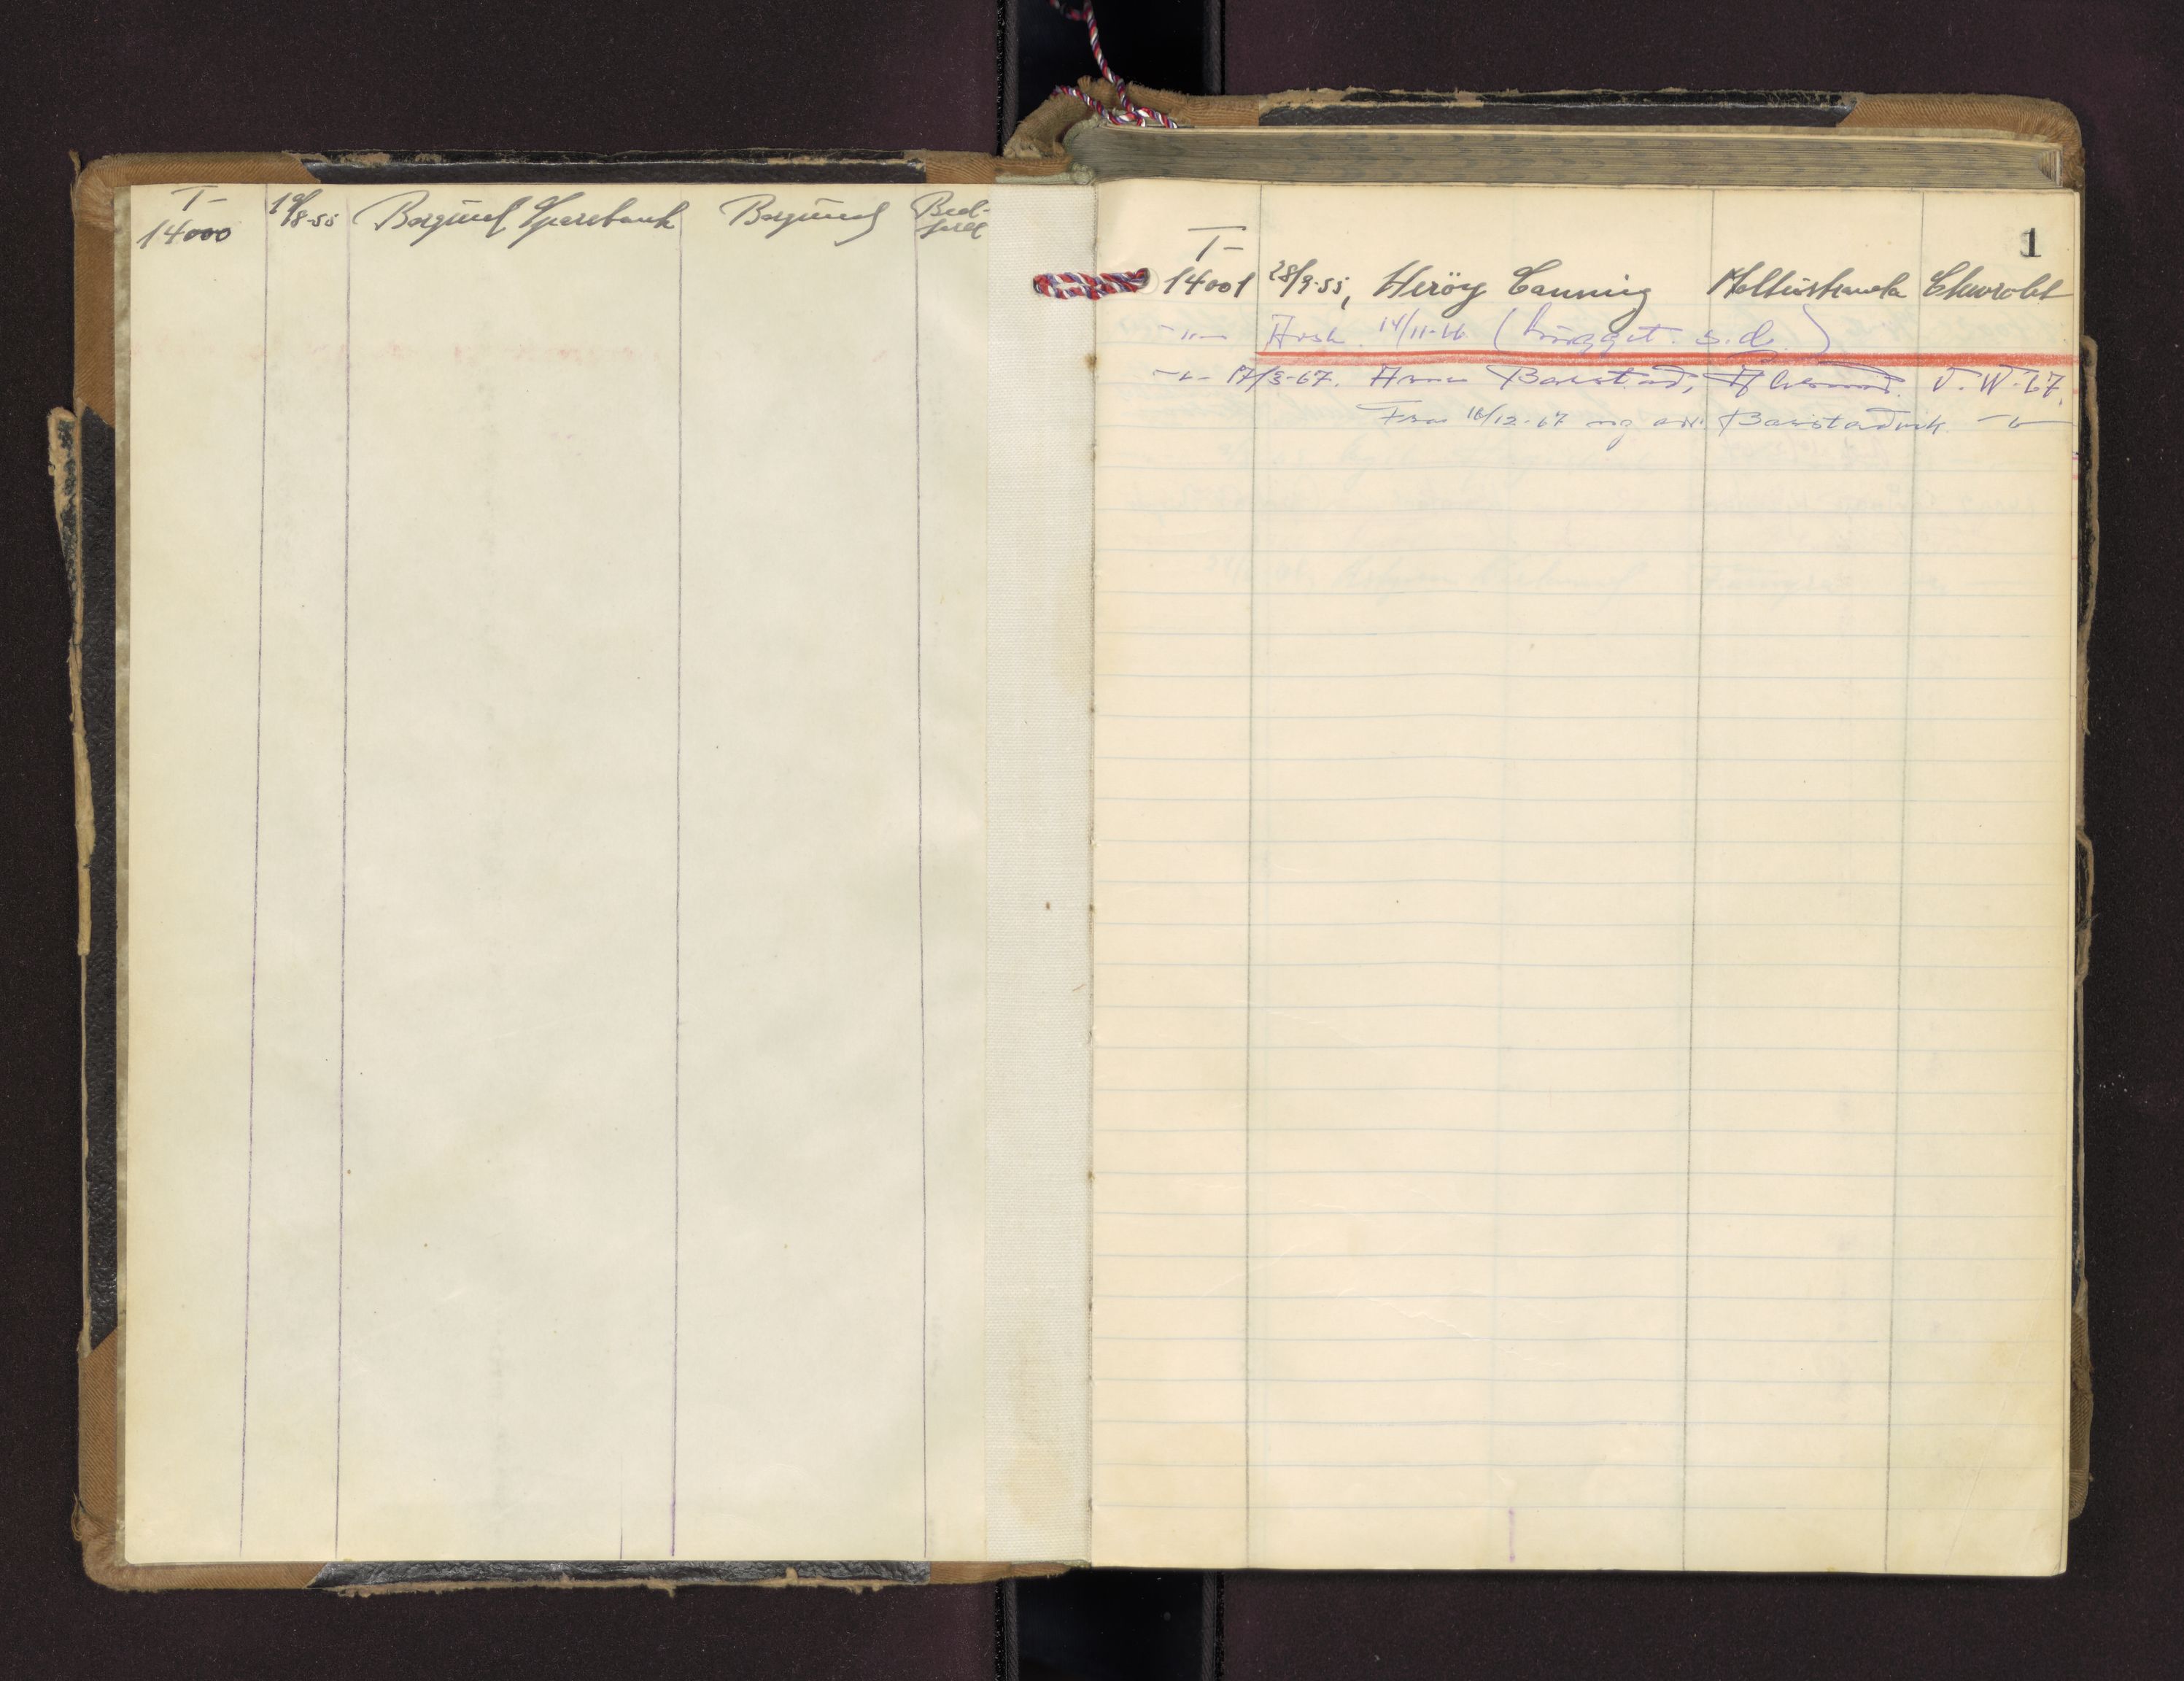 T-
14000 19/8-55 Borgund Sparebank Borgund Bed-
ford
1
T-
14001 28/9-55, Heröy Canning Moltustranda Chevrolet
-"- Avsk. 14/11-66 (hugget. s.d.)
-"- 17/3-67. Arne Barstad, V.W-67.
Fra 16/12-67 ny adr. Barstadvik -"-